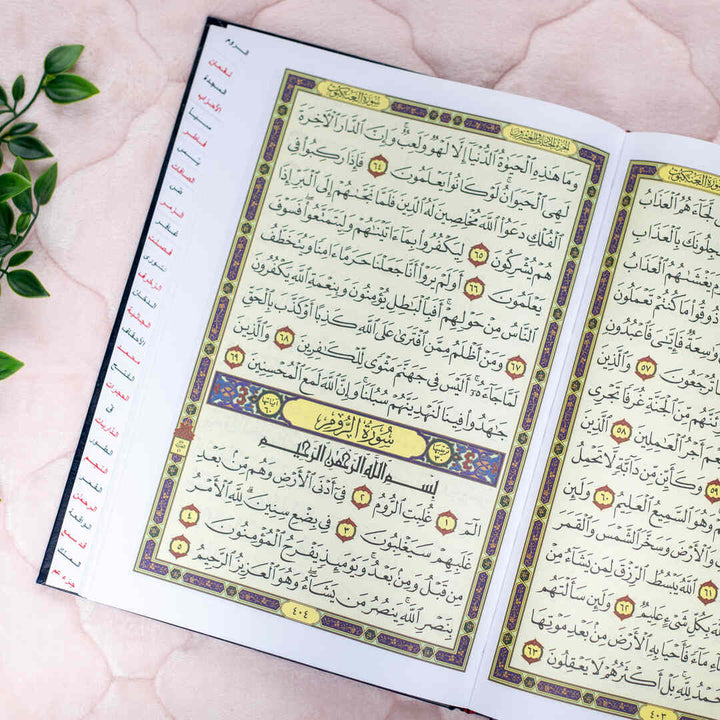 سورة العنكبوت
لَّجَآءَهُمُ ٱلْعَذَابُ
جِلُونَكَ بِٱلْعَذَابِ
يَغْشَىٰهُمُ ٱلْعَذَابُ
ذُوقُوا۟ مَا كُنتُمْ تَعْمَلُونَ
وَٰسِعَةٌ فَإِيَّـٰىَ فَٱعْبُدُونِ
تُرْجَعُونَ ٥٧ وَٱلَّذِينَ
ئَنَّهُم مِّنَ ٱلْجَنَّةِ غُرَفًا تَجْرِى
أَجْرُ ٱلْعَـٰمِلِينَ ٥٨ ٱلَّذِينَ
٥٩ وَكَأَيِّن مِّن دَآبَّةٍ لَّا تَحْمِلُ
وَهُوَ ٱلسَّمِيعُ ٱلْعَلِيمُ ٦٠ وَلَئِن
وَٱلْأَرْضَ وَسَخَّرَ ٱلشَّمْسَ وَٱلْقَمَرَ
٦١ ٱللَّهُ يَبْسُطُ ٱلرِّزْقَ لِمَن يَشَآءُ مِنْ
بِكُلِّ شَىْءٍ عَلِيمٌ ٦٢ وَلَئِن سَأَلْتَهُم
مَآءً فَأَحْيَا بِهِ ٱلْأَرْضَ مِنۢ بَعْدِ مَوْتِهَا
ٱلْحَمْدُ لِلَّهِ بَلْ أَكْثَرُهُمْ لَا يَعْقِلُونَ ٦٣
٤٠٣
الجزء الحادي والعشرون
سورة العنكبوت
وَمَا هَـٰذِهِ ٱلْحَيَوٰةُ ٱلدُّنْيَآ إِلَّا لَهْوٌ وَلَعِبٌ وَإِنَّ ٱلدَّارَ ٱلْـَٔاخِرَةَ
لَهِىَ ٱلْحَيَوَانُ لَوْ كَانُوا۟ يَعْلَمُونَ ٦٤ فَإِذَا رَكِبُوا۟ فِى
ٱلْفُلْكِ دَعَوُا۟ ٱللَّهَ مُخْلِصِينَ لَهُ ٱلدِّينَ فَلَمَّا نَجَّىٰهُمْ إِلَى ٱلْبَرِّ إِذَا
هُمْ يُشْرِكُونَ ٦٥ لِيَكْفُرُوا۟ بِمَآ ءَاتَيْنَـٰهُمْ وَلِيَتَمَتَّعُوا۟ فَسَوْفَ
يَعْلَمُونَ ٦٦ أَوَلَمْ يَرَوْا۟ أَنَّا جَعَلْنَا حَرَمًا ءَامِنًا وَيُتَخَطَّفُ
ٱلنَّاسُ مِنْ حَوْلِهِمْ أَفَبِٱلْبَـٰطِلِ يُؤْمِنُونَ وَبِنِعْمَةِ ٱللَّهِ يَكْفُرُونَ
٦٧ وَمَنْ أَظْلَمُ مِمَّنِ ٱفْتَرَىٰ عَلَى ٱللَّهِ كَذِبًا أَوْ كَذَّبَ بِٱلْحَقِّ
لَمَّا جَآءَهُۥٓ أَلَيْسَ فِى جَهَنَّمَ مَثْوًى لِّلْكَـٰفِرِينَ ٦٨ وَٱلَّذِينَ
جَـٰهَدُوا۟ فِينَا لَنَهْدِيَنَّهُمْ سُبُلَنَا وَإِنَّ ٱللَّهَ لَمَعَ ٱلْمُحْسِنِينَ ٦٩
ترتيبها ٣٠ سُورَةُ الرُّومِ آياتها ٦٠
بِسْمِ ٱللَّهِ ٱلرَّحْمَـٰنِ ٱلرَّحِيمِ
الٓمٓ ١ غُلِبَتِ ٱلرُّومُ ٢ فِىٓ أَدْنَى ٱلْأَرْضِ وَهُم مِّنۢ بَعْدِ
غَلَبِهِمْ سَيَغْلِبُونَ ٣ فِى بِضْعِ سِنِينَ لِلَّهِ ٱلْأَمْرُ
مِن قَبْلُ وَمِنۢ بَعْدُ وَيَوْمَئِذٍ يَفْرَحُ ٱلْمُؤْمِنُونَ ٤
بِنَصْرِ ٱللَّهِ يَنصُرُ مَن يَشَآءُ وَهُوَ ٱلْعَزِيزُ ٱلرَّحِيمُ ٥
٤٠٤
الروم
لقمان
السجدة
الأحزاب
سبأ
فاطر
يس
الصافات
ص
الزمر
غافر
فصلت
الشورى
الزخرف
الدخان
الجاثية
الأحقاف
محمد
الفتح
الحجرات
ق
الذاريات
الطور
النجم
القمر
الرحمن
الواقعة
قد سمع
الملك
جزء عم